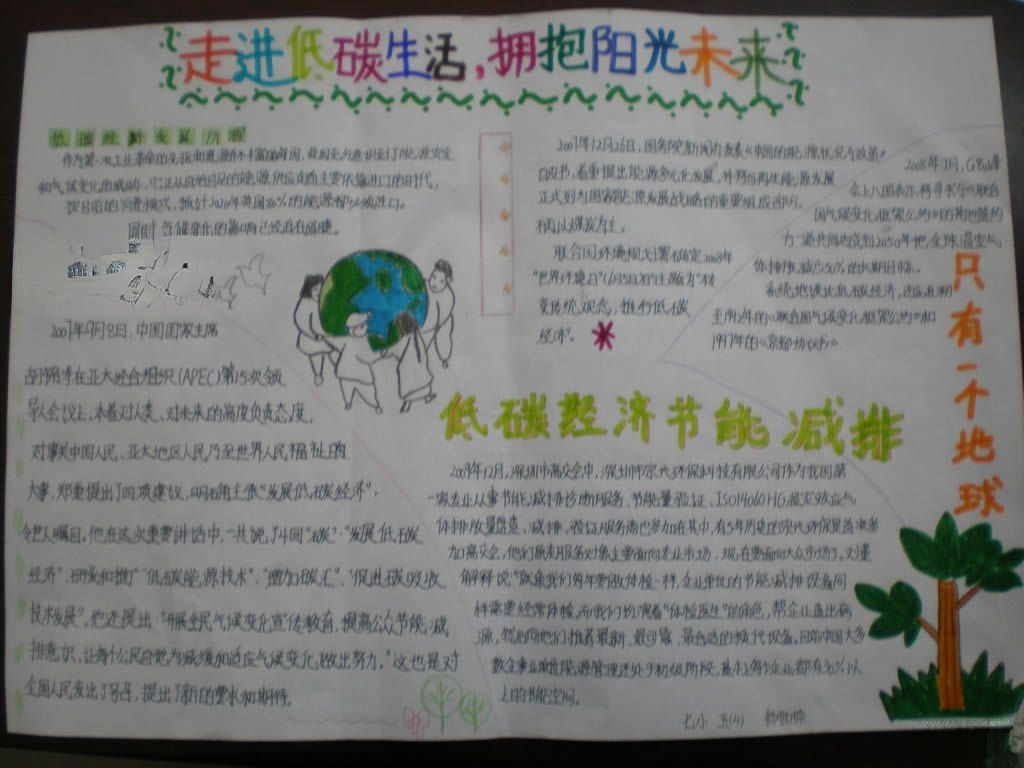 走进低碳生活,拥抱阳光未来
低碳经济发展历程
作为第一次工业革命的先驱和资源并不丰富的岛国,英国充分意识到了能源安全
和气候变化的威胁,它正从自给自足的能源供应走向主要依靠进口的时代,
按目前的消费模式,预计2020年英国80%的能源都必须进口。
同时,气候变化的影响已经迫在眉睫。
2007年9月8日,中国国家主席
胡锦涛在亚太经合组织(APEC)第15次领
导人会议上,本着对人类、对未来的高度负责态度,
对事关中国人民、亚太地区人民乃至世界人民福祉的
大事,郑重提出了四项建议,明确主张"发展低碳经济",
令世人瞩目。他在这次重要讲话中,一共说了4回"碳":"发展低碳
经济"、研发和推广"低碳能源技术"、"增加碳汇"、"促进碳吸收
技术发展"。他还提出:"开展全民气候变化宣传教育,提高公众节能减
排意识,让每个公民自觉为减缓和适应气候变化做出努力。"这也是对
全国人民发出了号召,提出了新的要求和期待。
2007年12月26日,国务院新闻办发表《中国的能源状况与政策》
白皮书,着重提出能源多元化发展,并将可再生能源发展
正式列为国家能源发展战略的重要组成部分,
不再以煤炭为主。
联合国环境规划署确定2008年
"世界环境日"(6月5日)的主题为"转
变传统观念,推行低碳
经济"。
2008年7月,G8峰
会上八国表示将寻求与《联合
国气候变化框架公约》的其他签约
方一道共同达成到2050年把全球温室气
体排放减少50%的长期目标。
系统地谈论低碳经济,还应追溯
至1992年的《联合国气候变化框架公约》和
1997年的《京都协议书》
只有一个地球
低碳经济节能减排
2009年12月,深圳市高交会中,深圳市
环保科技有限公司作为我国第
一家专业从事节能减排诊断服务、节能量验证、ISO14060HG温室效应气
体排放量盘查、减排、验证服务商也参加在其中,有5年历史的
环保是首次参
加高交会,他们原来服务对象主要面向专业市场,现在要面向大众市场了,
解释说"就象我们每年要做体检一样,企业单位的节能减排设备同
样需要经常体检,而我们扮演着"体检医生"的角色,帮企业查出病
源,然后向他们推荐最新、最可靠、最合适的换代设备,目前中国大多
数企事业单位能源管理还处于初级阶段,基本上每个企业都有30%以
上的节能空间。
七小 五(4)